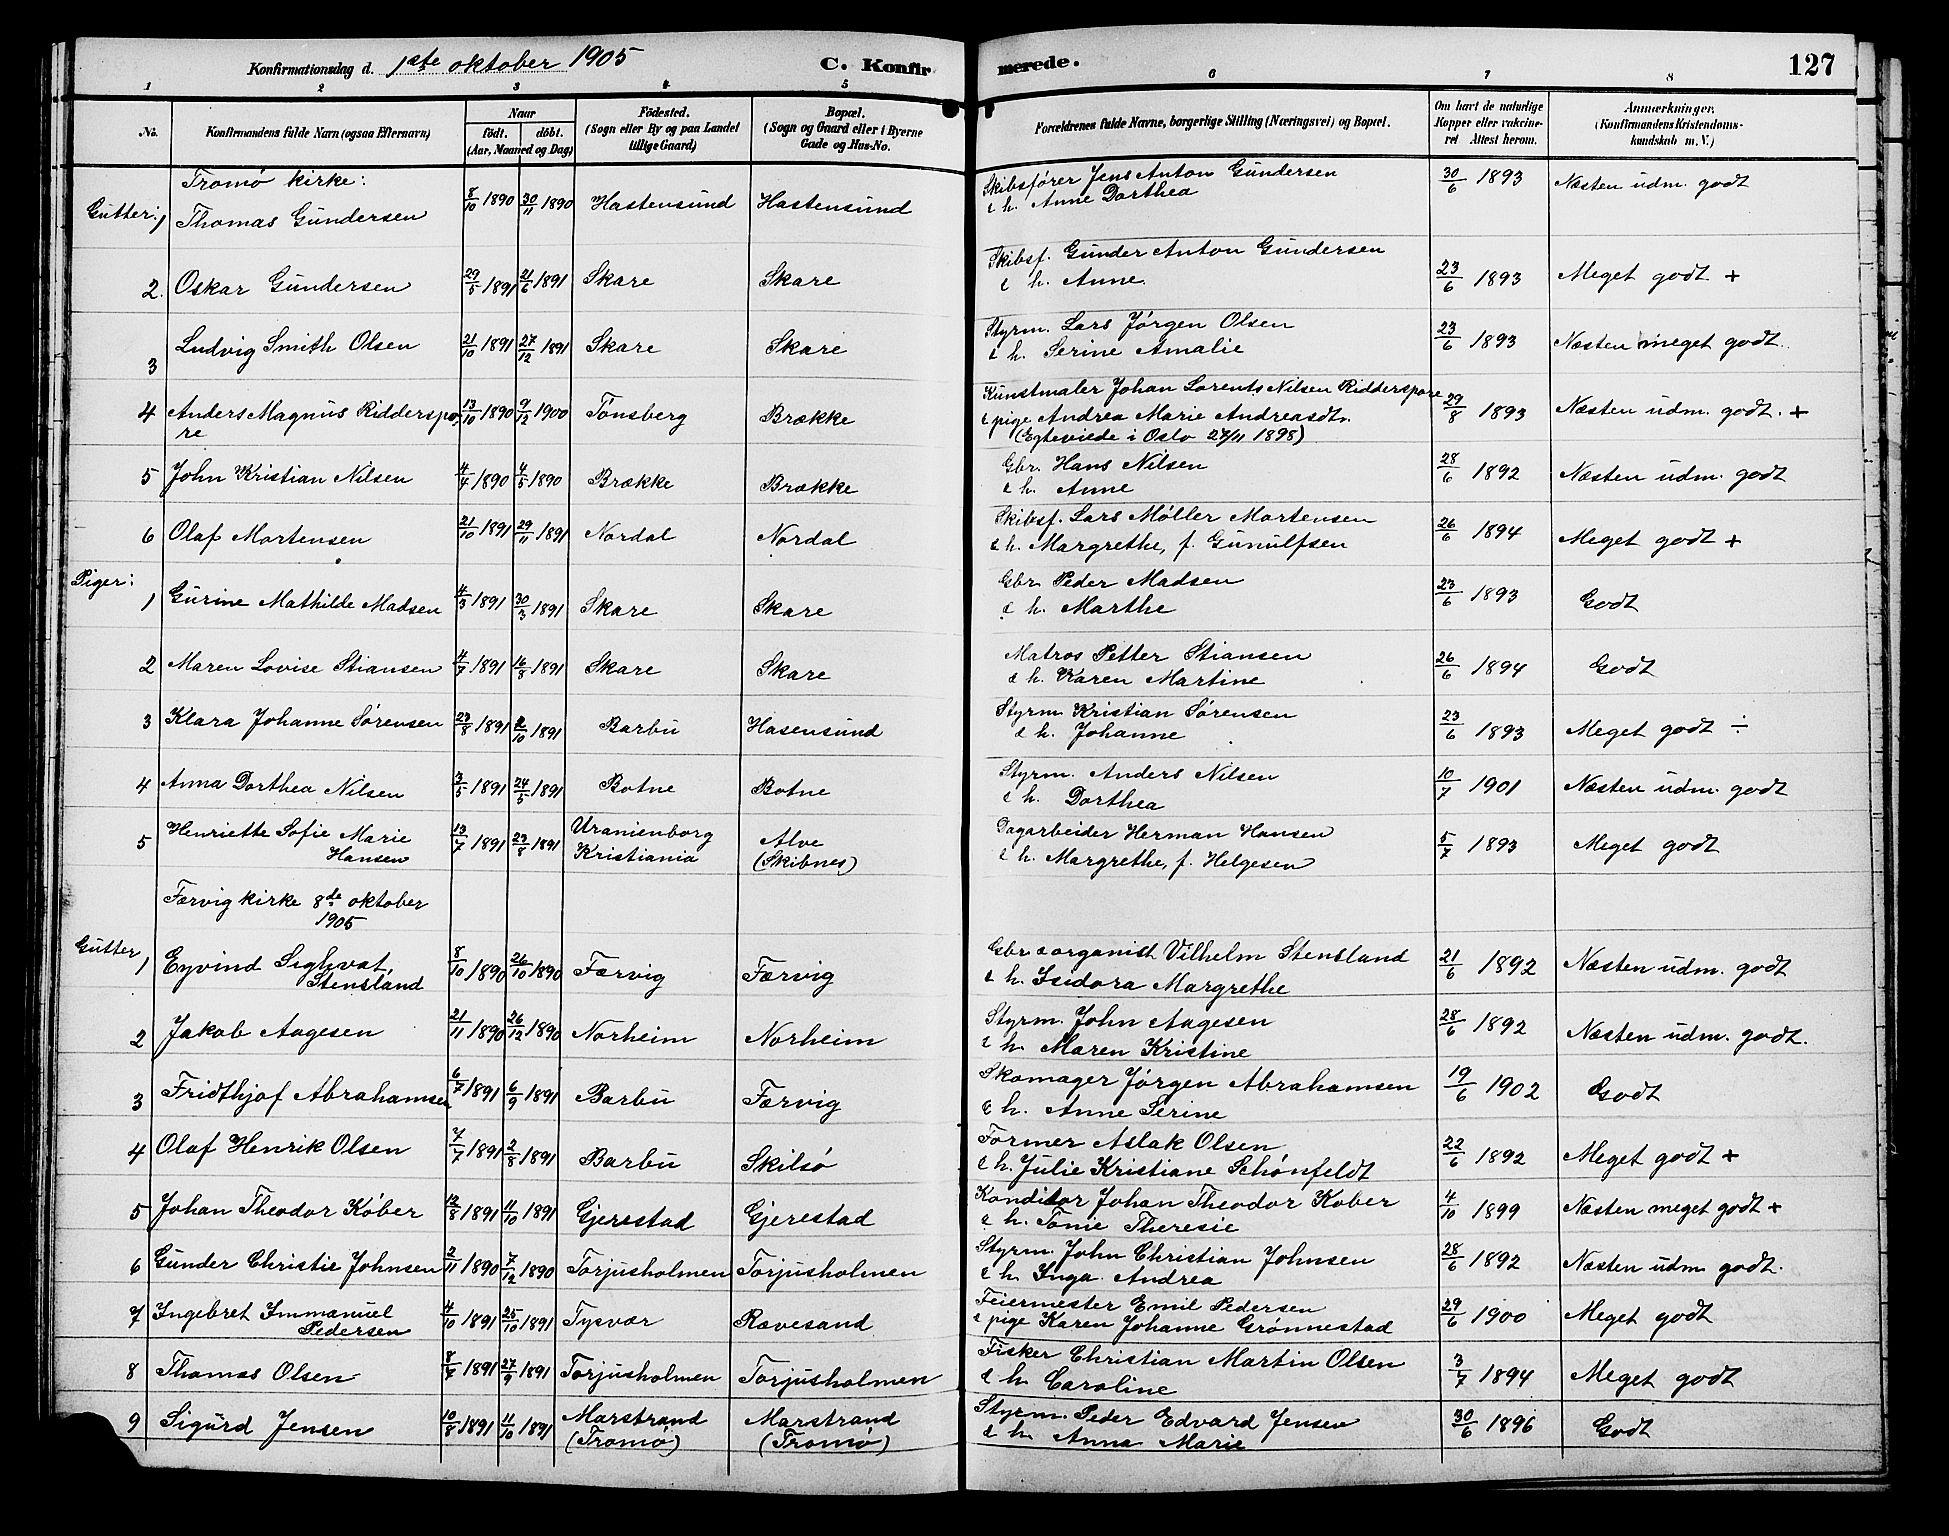 Konfirmationsdag d. 1ste oktober 1905 C. Konfirmerede. 127
1 2 3 4 5 6 7 8
No. Konfirmandens fulde Navn (ogsaa Efternavn) Naar födt. döbt. (Aar, Maaned og Dag) Födested. (Sogn eller By og paa Landet tillige Gaard) Bopæl. (Sogn og Gaard eller i Byerne Gade og Hus-No. Forældrenes fulde Navne, borgerlige Stilling (Næringsvei) og Bopæl. Om havt de naturlige Kopper eller vakcineret Attest herom. Anmærkninger. (Konfirmandens Kristendomskundskab m. V.)
Tromø kirke:
Gutter: 1 Thomas Gundersen 8/10 1890 30/11 1890 Hastensund Hastensund Skibsfører Jens Anton Gundersen 30/6 1893 Næsten udm. godt
& h. Anne Dorthea
2. Oskar Gundersen 29/5 1891 21/6 1891 Skare Skare Skibsf. Gunder Anton Gundersen 23/6 1893 Meget godt +
& h. Anne
3 Ludvig Smith Olsen 21/10 1891 27/12 1891 Skare Skare Styrm. Lars Jørgen Olsen 23/6 1893 Næsten meget godt.
& h. Serine Amalie
4 Anders Magnus Ridderspo- 13/10 1890 9/12 1900 Tønsberg Brække Kunstmaler Johan Lorents Nilsen Ridderspore 29/8 1893 Næsten udm. godt. +
re & pige Andrea Marie Andreasdt.
(Egteviede i Oslo 27/11 1898)
5 John Kristian Nilsen 4/4 1890 4/5 1890 Brække Brække Gbr. Hans Nilsen 28/6 1892 Næsten udm. godt
& h. Anne
6 Olaf Mortensen 21/10 1891 29/11 1891 Nordal Nordal Skibsf. Lars Møller Mortensen 26/6 1894 Meget godt +
& h. Margrethe, f. Gunulfsen
Piger: 1 Gurine Mathilde Madsen 4/3 1891 30/3 1891 Skare Skare Gbr. Peder Madsen 23/6 1893 Godt
& h. Marthe
2 Maren Lovise Stiansen 4/7 1891 16/8 1891 Skare Skare Matros Petter Stiansen 26/6 1894 Godt
& h. Karen Martine
3 Klara Johanne Sørensen 23/8 1891 /10 1891 Barbu Hasensund Styrm. Kristian Sørensen 23/6 1893 Meget godt ÷
& h. Johanne
4 Anna Dorthea Nilsen 3/5 1891 24/5 1891 Botne Botne Styrm. Anders Nilsen 10/7 1901 Næsten udm. godt
& h. Dorthea
5 Henriette Sofie Marie 13/7 1891 23/8 1891 Uranienborg Alve Dagarbeider Herman Hansen 5/7 1893 Meget godt
Hansen Kristiania (Skibnes) & h. Margrethe, f. Helgesen
Færvig kirke 8de oktober
1905
Gutter 1 Eyvind Sighvat 8/10 1890 26/10 1890 Færvig Færvig Gbr. & organist Vilhelm Stensland 21/6 1892 Næsten udm. godt
Stensland & h. Isidora Margrethe
2 Jakob Aagesen 21/11 1890 26/12 1890 Norheim Norheim Styrm. John Aagesen 28/6 1892 Næsten udm. godt.
& h. Maren Kristine
3 Fridthjof Abrahamsen 6/7 1891 6/9 1891 Barbu Færvig Skomager Jørgen Abrahamsen 19/6 1902 Godt
& h. Anne Serine
4 Olaf Henrik Olsen 7/7 1891 2/8 1891 Barbu Skilsø Former Aslak Olsen 22/6 1892 Meget godt +
& h. Julie Kristiane Schønfeldt
5 Johan Theodor Køber 12/8 1891 11/10 1891 Gjerestad Gjerestad Konditor Johan Theodor Kober 4/10 1899 Næsten meget godt +
& h. Tonie Theresie
6 Gunder Christie Johnsen 2/11 1890 7/12 1890 Torjusholmen Torjusholmen Styrm. John Christian Johnsen 28/6 1892 Næsten udm godt.
& h. Inga Andrea
7 Ingebret Immanuel 4/10 1891 25/10 1891 Tysvær Rævesand Feiermester Emil Pedersen 29/6 1900 Meget godt
Pedersen & pige Karen Johanne Grønnestad
8 Thomas Olsen 8/7 1891 27/9 1891 Torjusholmen Torjusholmen Fisker Christian Martin Olsen 3/7 1894 Meget godt
& h. Caroline
9 Sigurd Jensen 10/8 1891 11/10 1891 Marstrand Marstrand Styrm. Peder Edvard Jensen 30/6 1896 Godt
(Tromø) (Tromø) & h. Anna Marie